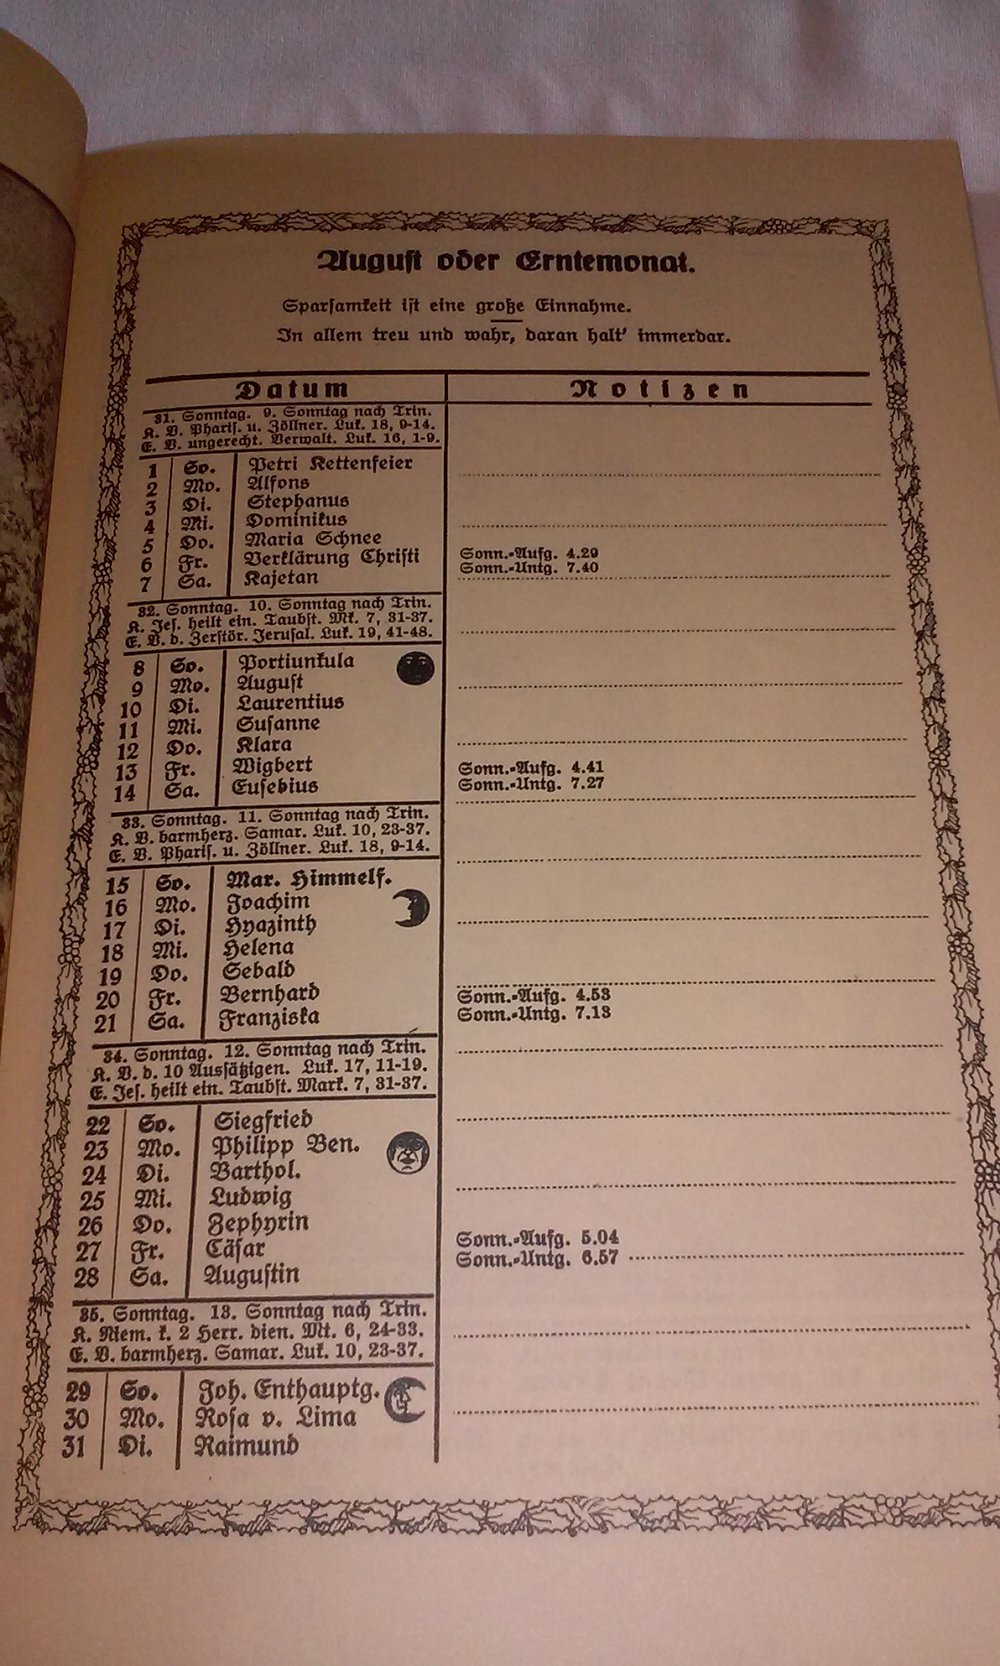 August oder Erntemonat.
Sparsamkeit ist eine große Einnahme.
In allem treu und wahr, daran halt' immerdar.
Datum Notizen
31. Sonntag. 9. Sonntag nach Trin.
K. V. Pharis. u. Zöllner. Luk. 18, 9-14.
E. V. ungerecht. Verwalt. Luk. 16, 1-9.
1 So. Petri Kettenfeier
2 Mo. Alfons
3 Di. Stephanus
4 Mi. Dominikus
5 Do. Maria Schnee
6 Fr. Verklärung Christi Sonn.-Aufg. 4.29
7 Sa. Kajetan Sonn.-Untg. 7.40
32. Sonntag. 10. Sonntag nach Trin.
K. Jes. heilt ein. Taubst. Mk. 7, 31-37.
E. V. d. Zerstör. Jerusal. Luk. 19, 41-48.
8 So. Portiunkula
9 Mo. August
10 Di. Laurentius
11 Mi. Susanne
12 Do. Klara
13 Fr. Wigbert Sonn.-Aufg. 4.41
14 Sa. Eusebius Sonn.-Untg. 7.27
33. Sonntag. 11. Sonntag nach Trin.
K. V. barmherz. Samar. Luk. 10, 23-37.
E. V. Pharis. u. Zöllner. Luk. 18, 9-14.
15 So. Mar. Himmelf.
16 Mo. Joachim
17 Di. Hyazinth
18 Mi. Helena
19 Do. Sebald
20 Fr. Bernhard Sonn.-Aufg. 4.53
21 Sa. Franziska Sonn.-Untg. 7.13
34. Sonntag. 12. Sonntag nach Trin.
K. V. d. 10 Aussätzigen. Luk. 17, 11-19.
E. Jes. heilt ein. Taubst. Mark. 7, 31-37.
22 So. Siegfried
23 Mo. Philipp Ben.
24 Di. Barthol.
25 Mi. Ludwig
26 Do. Zephyrin
27 Fr. Cäsar Sonn.-Aufg. 5.04
28 Sa. Augustin Sonn.-Untg. 6.57
35. Sonntag. 13. Sonntag nach Trin.
K. Niem. k. 2 Herr. dien. Mt. 6, 24-33.
E. V. barmherz. Samar. Luk. 10, 23-37.
29 So. Joh. Enthauptg.
30 Mo. Rosa v. Lima
31 Di. Raimund